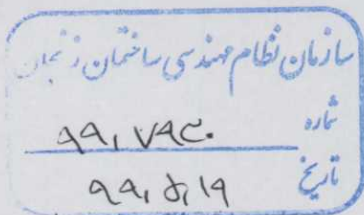 سازمان نظام مهندسی ساختمان زنجان
شماره ۹۹,۷۹۳۰
تاریخ ۹۹,۵,۱۹